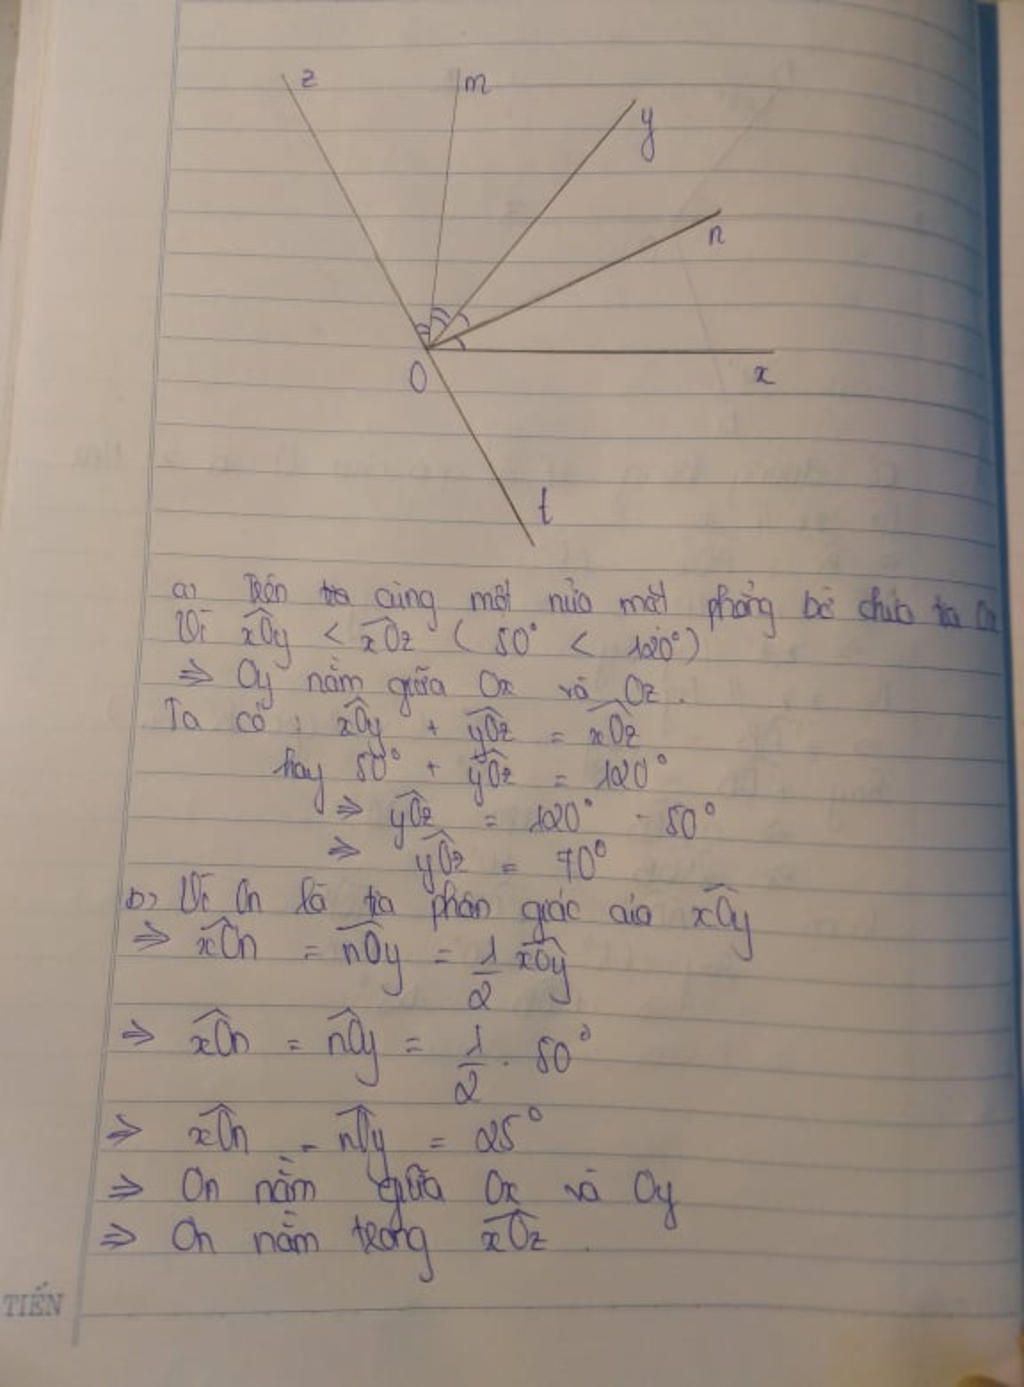 z
m
y
n
O
x
t
a) Trên tia cùng một nửa mặt phẳng bờ chứa tia Ox
Vì xÔy < xÔz ( 50° < 120°)
⇒ Oy nằm giữa Ox và Oz.
Ta có : xÔy + yÔz = xÔz
hay 50° + yÔz = 120°
⇒ yÔz = 120° - 50°
⇒ yÔz = 70°
b) Vì On là tia phân giác của xÔy
⇒ xÔn = nÔy = 1/2 xÔy
⇒ xÔn = nÔy = 1/2 . 50°
⇒ xÔn = nÔy = 25°
⇒ On nằm giữa Ox và Oy
⇒ On nằm trong xÔz .
TIẾN